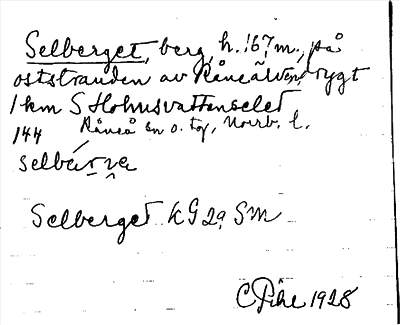 Selberget, berg, h. 167 m., på
oststranden av Råneälven, drygt
1 km S Holmsvattenselet
144 Råneå sn o. tg, Norrb. l.
Selberget KG 2a Sm
C Pihl 1928